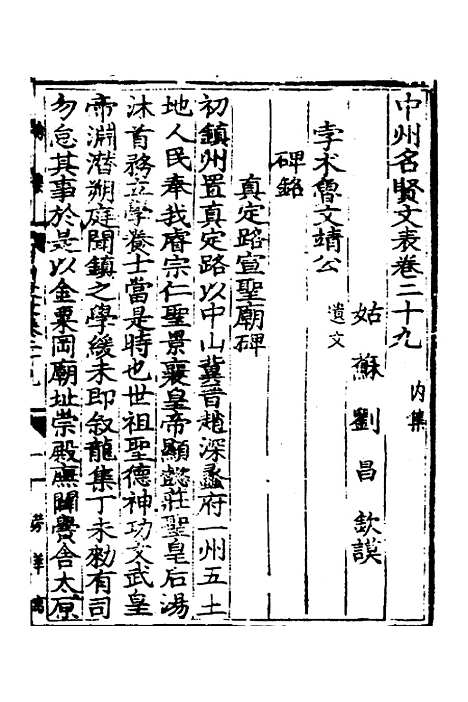 中州名賢文表卷二十九 內集
姑蘇劉昌欽謨
孛朮魯文靖公 遺文
碑銘
真定路宣聖廟碑
初鎮州置真定路以中山冀晉趙深蠡府一州五土
地人民奉我睿宗仁聖景襄皇帝顯懿莊聖皇后湯
沐首務立學養士當是時也世祖聖德神功文武皇
帝淵潛朔庭聞鎮之學緩未即叙龍集丁未勑有司
勿怠其事於是以金粟岡廟址崇殿廡闢黌舍太原